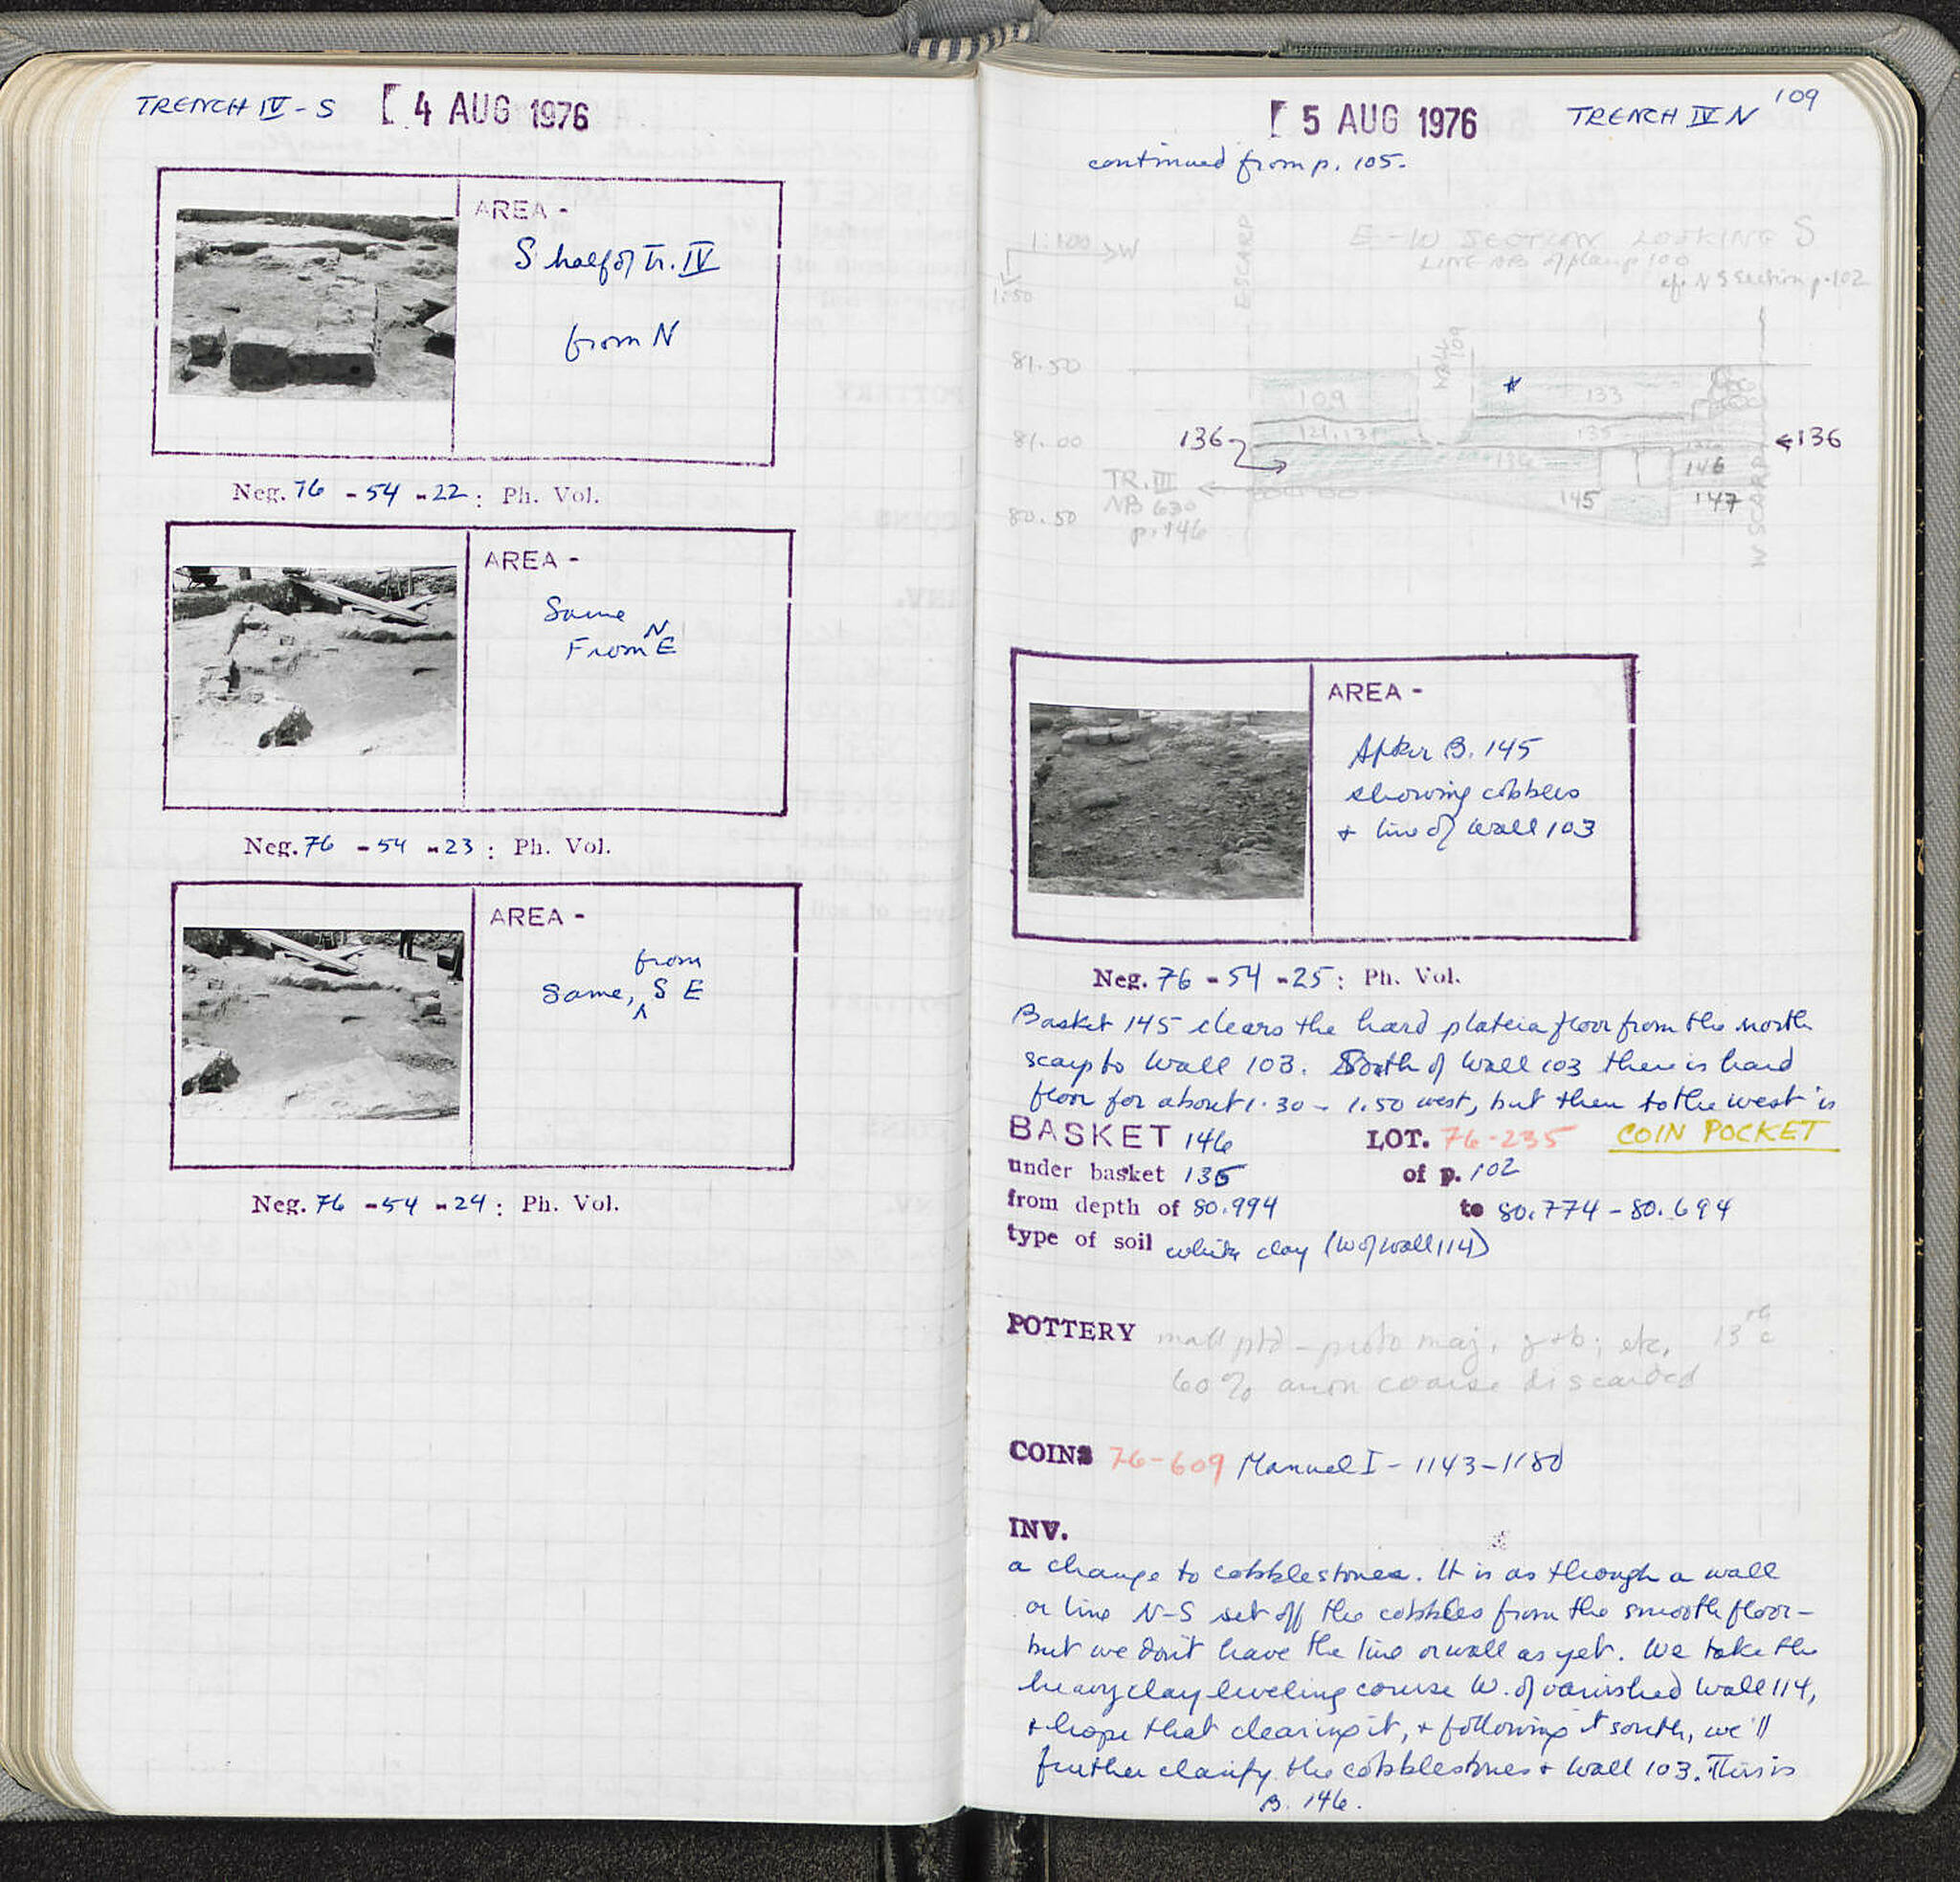 TRENCH IV - S
[ 4 AUG 1976
AREA -
S half of Tr. IV
from N
Neg. 76 - 54 - 22 : Ph. Vol.
AREA -
Same
From N E
Neg. 76 - 54 - 23 : Ph. Vol.
AREA -
Same, from S E
Neg. 76 - 54 - 24 : Ph. Vol.
109
[ 5 AUG 1976
TRENCH IV N
continued from p. 105.
1:100 → W
1:50
E SCARP
E-W SECTION LOOKING S
LINE AB of plan p 100
cf. N S section p. 102
81.50
WALL 109
109
133
81.00
136
121, 131
135
←136
136
146
TR. III
NB 630
p. 146
145
147
80.50
W SCARP
AREA -
After B. 145
showing cobbles
+ line of wall 103
Neg. 76 - 54 - 25 : Ph. Vol.
Basket 145 clears the hard plateia floor from the north
scarp to Wall 103. South of Wall 103 there is hard
floor for about 1.30 - 1.50 west, but then to the west is
BASKET 146
LOT. 76-235
COIN POCKET
under basket 136
of p. 102
from depth of 80.994
to 80.774 - 80.694
type of soil white clay (W of wall 114)
POTTERY ptd - proto maj, g+b; etc. 13th c
60% anon coarse discarded
COINS 76-609 Manuel I - 1143-1180
INV.
a change to cobblestones. It is as though a wall
or line N-S set off the cobbles from the smooth floor -
but we don't have the line or wall as yet. We take the
heavy clay leveling course W. of vanished Wall 114,
+ hope that clearing it, + following it south, we'll
further clarify the cobblestones + Wall 103. This is
B. 146.